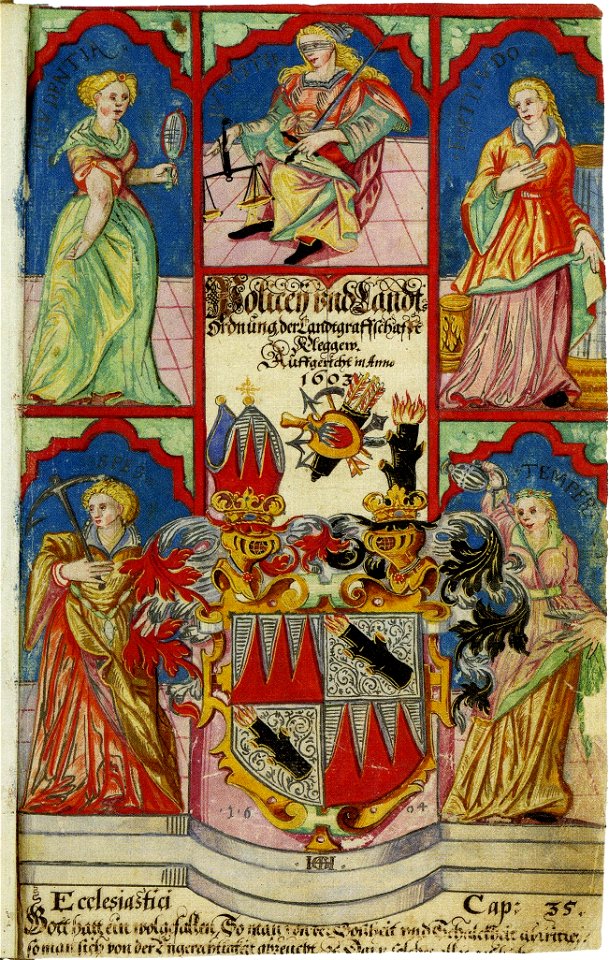 PRVDENTIA
IVSTITIA
FORTITVDO
Policey vnd Landt-
Ordnung der Landtgraffschafft
Kleggew.
Auffgericht in Anno
1603
SPES
TEMPER
1604
Ecclesiastici Cap: 35.
Gott hatt ein wolgefallen, So man von der Boßheit vnd
so man sich von der Vngerechtigkeit